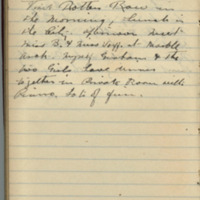 Visit Rotten Row in
the morning, lunch in
the City. Afternoon meet
Miss B. & Miss Hoff. at Marble
Arch. Myself Graham & the
two Girls have dinner
together in Private Room with
Piano, lots of fun.